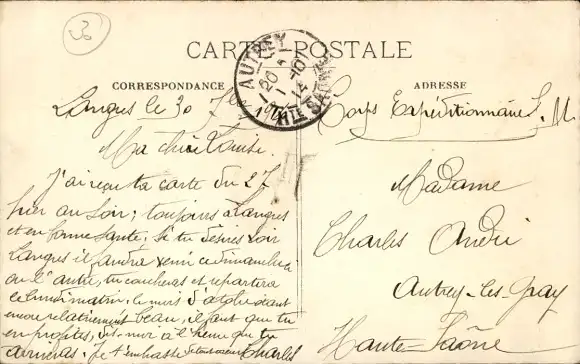 30
CARTE POSTALE
AUTREY
20
1-10
14
HTE SAONE
CORRESPONDANCE
ADRESSE
Langres le 30 7bre 1914
Ma chère Louise.
J'ai reçu ta carte du 27
hier au soir; toujours à Langres
et en bonne santé. Si tu désires voir
Langres il faudra venir ce dimanche ci
ou l'autre, tu coucheras et repartira
ce lundi matin, le mois d'octobre étant
encore relativement beau, il faut que tu
en profites, dis moi à l'heure que tu
arriveras. je t'embrasse Charles
Corps Expéditionnaire S. M.
Madame
Charles André
Autrey-les-Gray
Haute-Saône